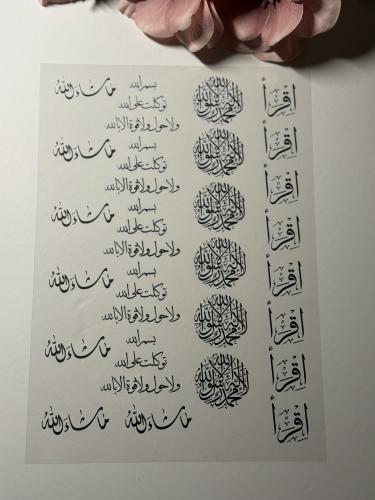 اقرأ
اقرأ
اقرأ
اقرأ
اقرأ
اقرأ
اقرأ
اقرأ
لا إله إلا الله محمد رسول الله
لا إله إلا الله محمد رسول الله
لا إله إلا الله محمد رسول الله
لا إله إلا الله محمد رسول الله
لا إله إلا الله محمد رسول الله
لا إله إلا الله محمد رسول الله
بسم الله
توكلت على الله
ولا حول ولا قوة إلا بالله
بسم الله
توكلت على الله
ولا حول ولا قوة إلا بالله
بسم الله
توكلت على الله
ولا حول ولا قوة إلا بالله
بسم الله
توكلت على الله
ولا حول ولا قوة إلا بالله
بسم الله
توكلت على الله
ولا حول ولا قوة إلا بالله
ما شاء الله
ما شاء الله
ما شاء الله
ما شاء الله
ما شاء الله
ما شاء الله
ما شاء الله